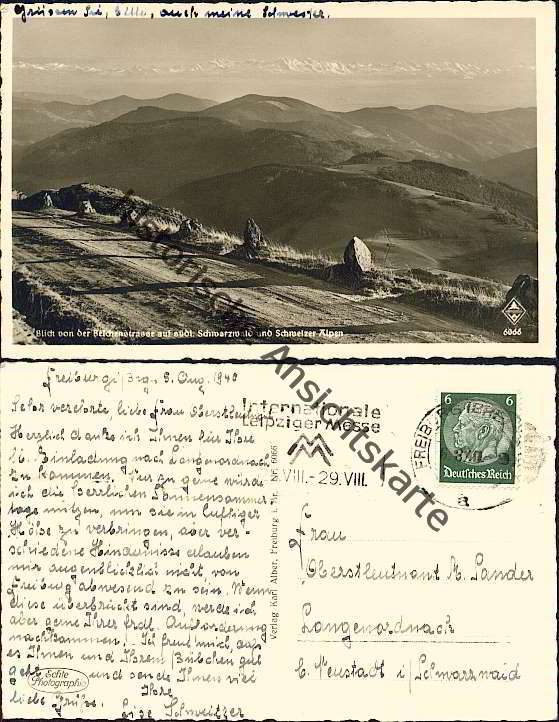 Grüssen Sie, bitte, auch meine Schwester.
Blick von der Belchenstrasse auf südl. Schwarzwald und Schweizer Alpen
6066
Historische Ansichtskarte
Freiburg i/Brg. 8. Aug. 1940
Sehr verehrte, liebe Frau Oberstleutnant
Herzlich danke ich Ihnen für Ihre
lb. Einladung nach Langenordnach
zu kommen. Nur zu gerne würde
ich die herrlichen Sonnensommer
tage nützen, um sie in luftiger
Höhe zu verbringen, aber ver-
schiedene Hindernisse erlauben
mir augenblicklich nicht, von
Freiburg abwesend zu sein. Wenn
diese überbrückt sind, werde ich
aber gerne Ihrer frdl. Aufforderung
nachkommen. Ich freue mich, daß
es Ihnen und Ihrem Bübchen gut
geht und sende Ihnen viel
liebe Grüße. Ihre
Lise Schweitzer
Echte
Photographie
Verlag Karl Alber, Freiburg i. Br. Nr. 6066
Internationale
Leipziger Messe
VIII.-29.VIII.
FREIBURG
a
6 6
Deutsches Reich
Frau
Oberstleutnant M. Sander
Langenordnach
b. Neustadt i/Schwarzwald